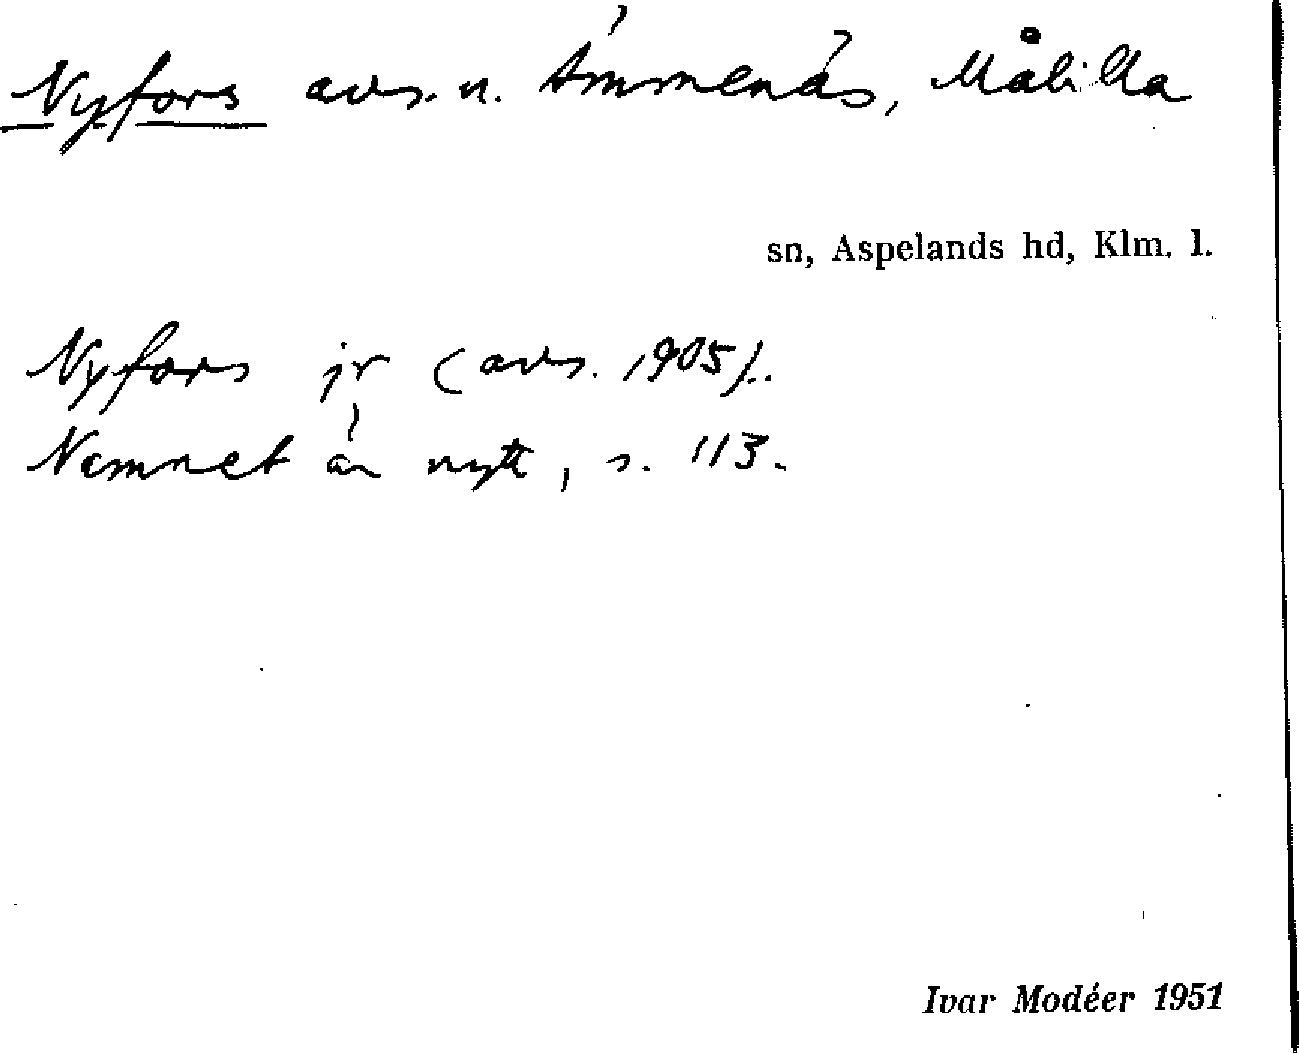 Nyfors avs. u. Ämmenäs, Målilla
sn, Aspelands hd, Klm. l.
Nyfors jr (avs. 1905)..
Namnet är nytt, s. 113.
Ivar Modéer 1951